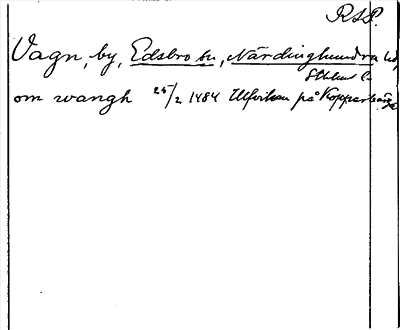 RSP.
Vagn, by, Edsbro sn, Närdinghundra hd,
Sthlms l.
om wangh 25/2 1484 Ulfvikan på Kopparbärg